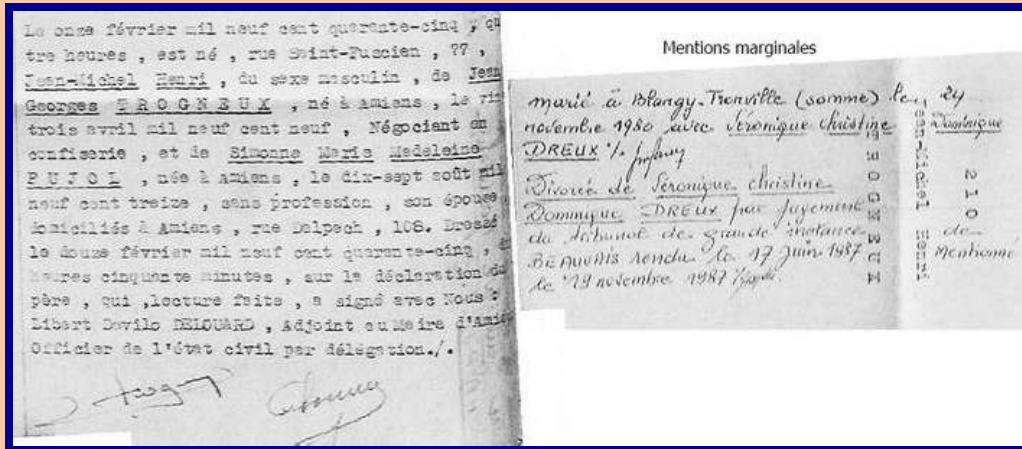 Le onze février mil neuf cent quarante-cinq , qu
tre heures , est né , rue Saint-Fuscien , ?? ,
Jean-Michel Henri , du sexe masculin , de Jean
Georges TROGNEUX , né à Amiens , le vin
trois avril mil neuf cent neuf , Négociant en
confiserie , et de Simonne Marie Madeleine
PUJOL , née à Amiens , le dix-sept août mil
neuf cent treize , sans profession , son épouse
domiciliés à Amiens , rue Delpech , 108. Dressé
le douze février mil neuf cent quarante-cinq ,
heures cinquante minutes , sur la déclaration du
père , qui ,lecture faite , a signé avec Nous
Libert Davilo DELOUARD , Adjoint au Maire d'Amie
Officier de l'état civil par délégation./.
Mentions marginales
marié à Blangy-Tronville (somme) le 24
novembre 1980 avec Véronique christine Dominique
DREUX
Divorcé de Véronique christine
Dominique DREUX par jugement
du tribunal de grande instance de
BEAUVAIS rendu le 17 juin 1987 Mentionné
le 19 novembre 1987
TROGNEUX
Jean-Michel Henri
210